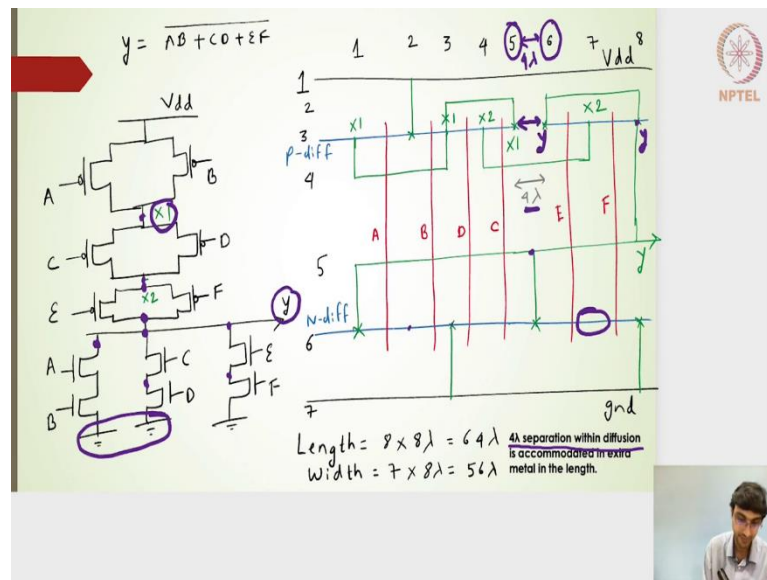 y = AB + CD + EF
1 2 3 4 5 6 7 8
4λ
Vdd
NPTEL
1
2
3
P-diff
4
5
N-diff
6
7
x1
x1
x2
x1
y
x2
y
4λ
A
B
D
C
E
F
y
gnd
Vdd
A
B
x1
C
D
x2
E
F
y
A
C
E
B
D
F
Length = 8 x 8λ = 64λ
Width = 7 x 8λ = 56λ
4λ separation within diffusion
is accommodated in extra
metal in the length.